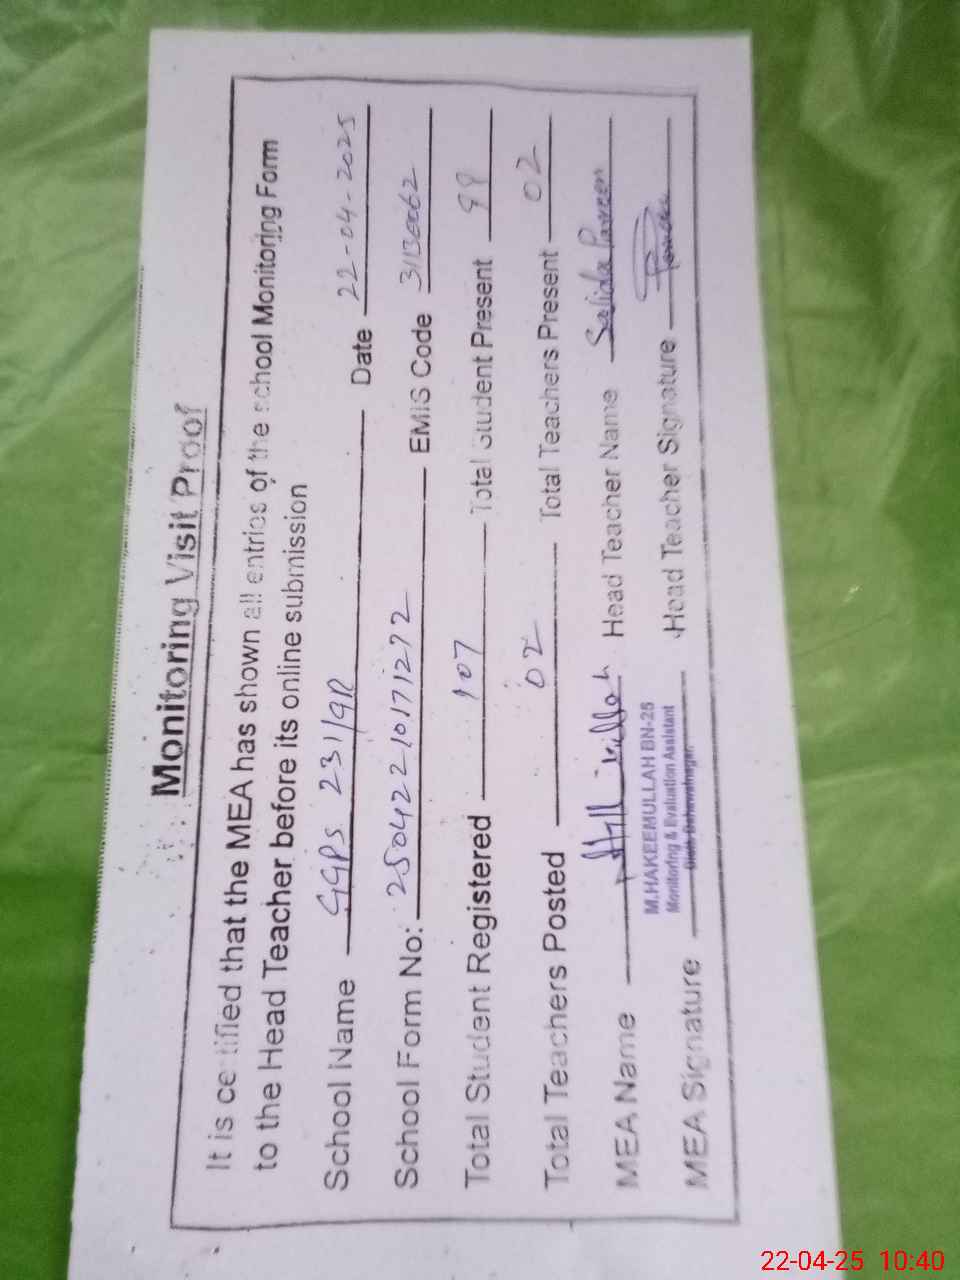 Monitoring Visit Proof
It is certified that the MEA has shown all entries of the school Monitoring Form
to the Head Teacher before its online submission
School Name GGPS 231/9R Date 22-04-2025
School Form No: 25042210171272 EMIS Code 31130062
Total Student Registered 107 Total Student Present 99
Total Teachers Posted 02 Total Teachers Present 02
MEA Name Head Teacher Name Sajida Parveen
M.HAKEEMULLAH BN-25
Monitoring & Evaluation Assistant
Distt: Bahawalnagar.
MEA Signature Head Teacher Signature
22-04-25 10:40